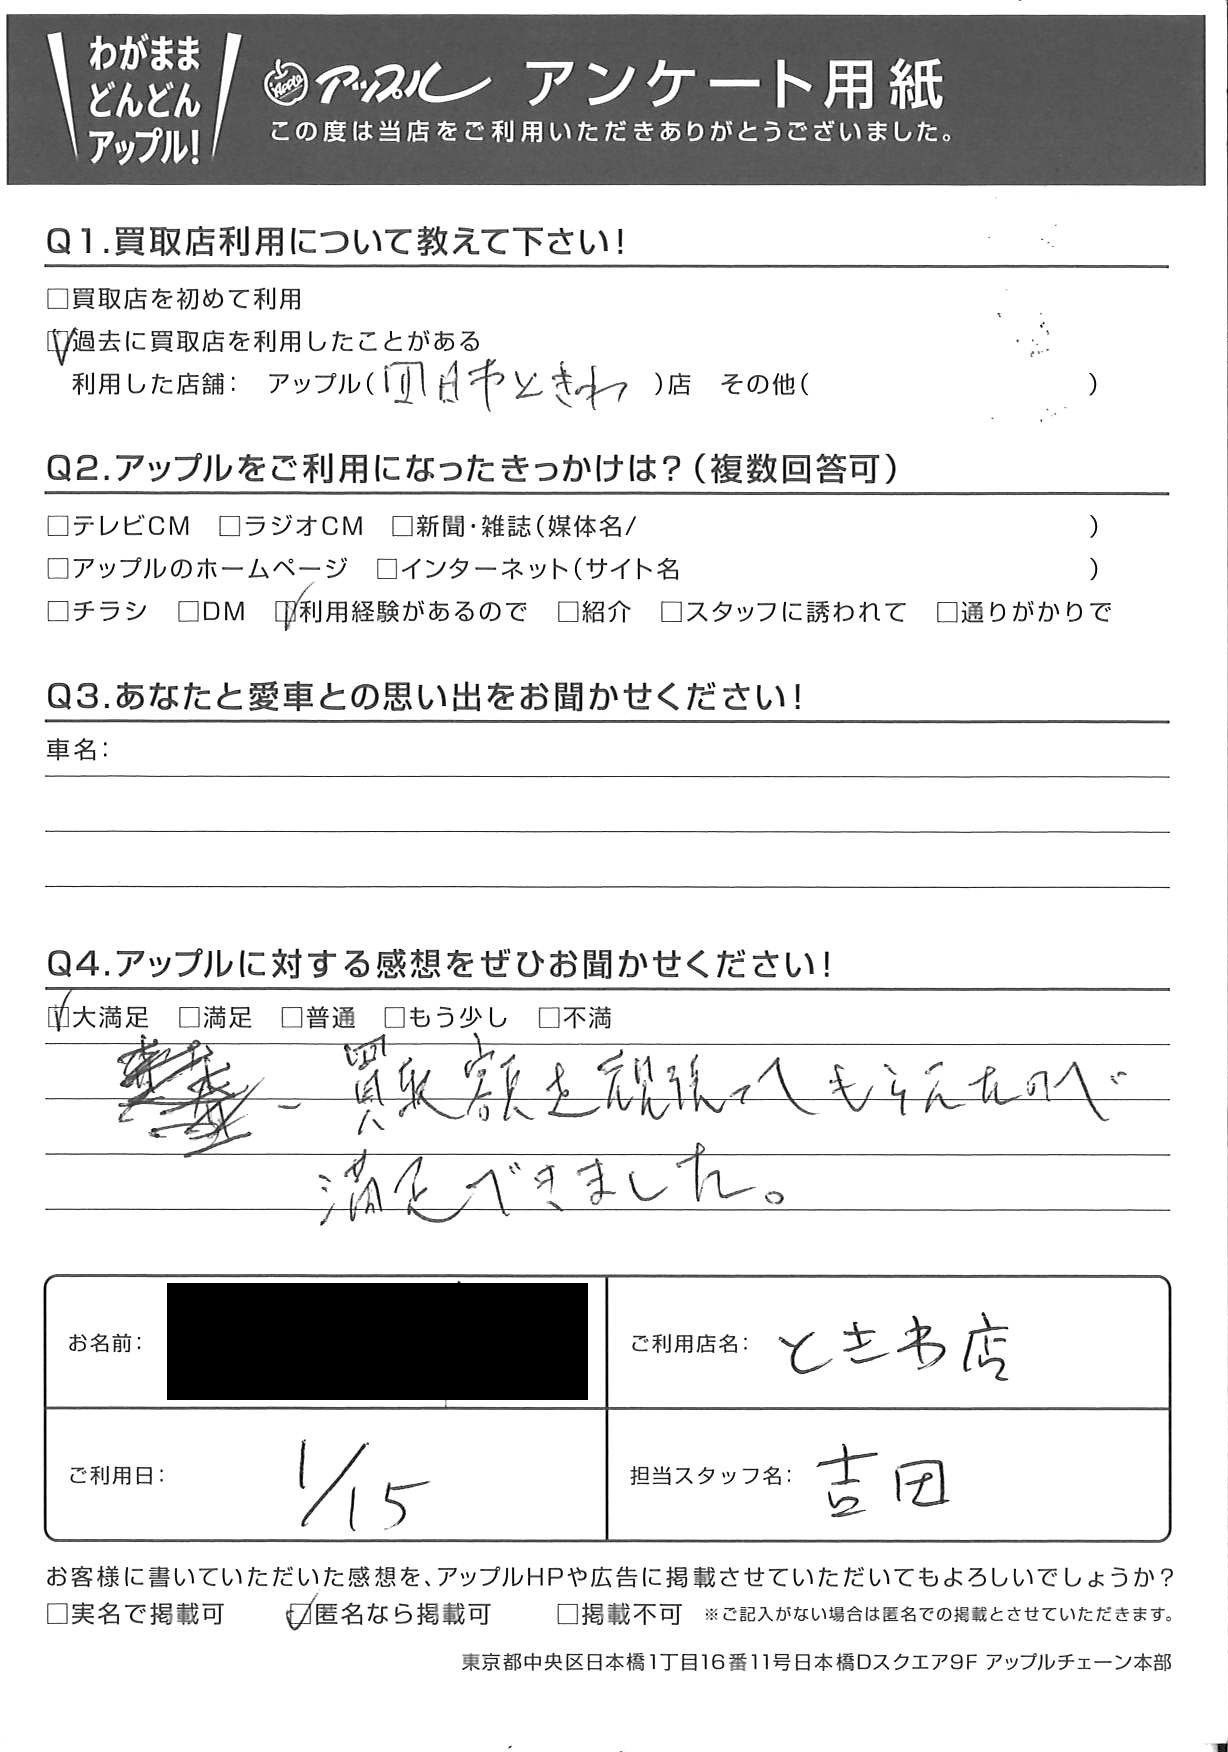 わがまま
どんどん
アップル!
Apple アップル アンケート用紙
この度は当店をご利用いただきありがとうございました。
Q1.買取店利用について教えて下さい!
□買取店を初めて利用
☑過去に買取店を利用したことがある
利用した店舗: アップル(四日市ときわ)店 その他( )
Q2.アップルをご利用になったきっかけは?(複数回答可)
□テレビCM □ラジオCM □新聞・雑誌(媒体名/ )
□アップルのホームページ □インターネット(サイト名 )
□チラシ □DM ☑利用経験があるので □紹介 □スタッフに誘われて □通りがかりで
Q3.あなたと愛車との思い出をお聞かせください!
車名:
Q4.アップルに対する感想をぜひお聞かせください!
☑大満足 □満足 □普通 □もう少し □不満
買取額を頑張ってもらえたので
満足できました。
お名前: ご利用店名: ときわ店
ご利用日: 1/15 担当スタッフ名: 吉田
お客様に書いていただいた感想を、アップルHPや広告に掲載させていただいてもよろしいでしょうか?
□実名で掲載可 ☑匿名なら掲載可 □掲載不可 ※ご記入がない場合は匿名での掲載とさせていただきます。
東京都中央区日本橋1丁目16番11号日本橋Dスクエア9F アップルチェーン本部